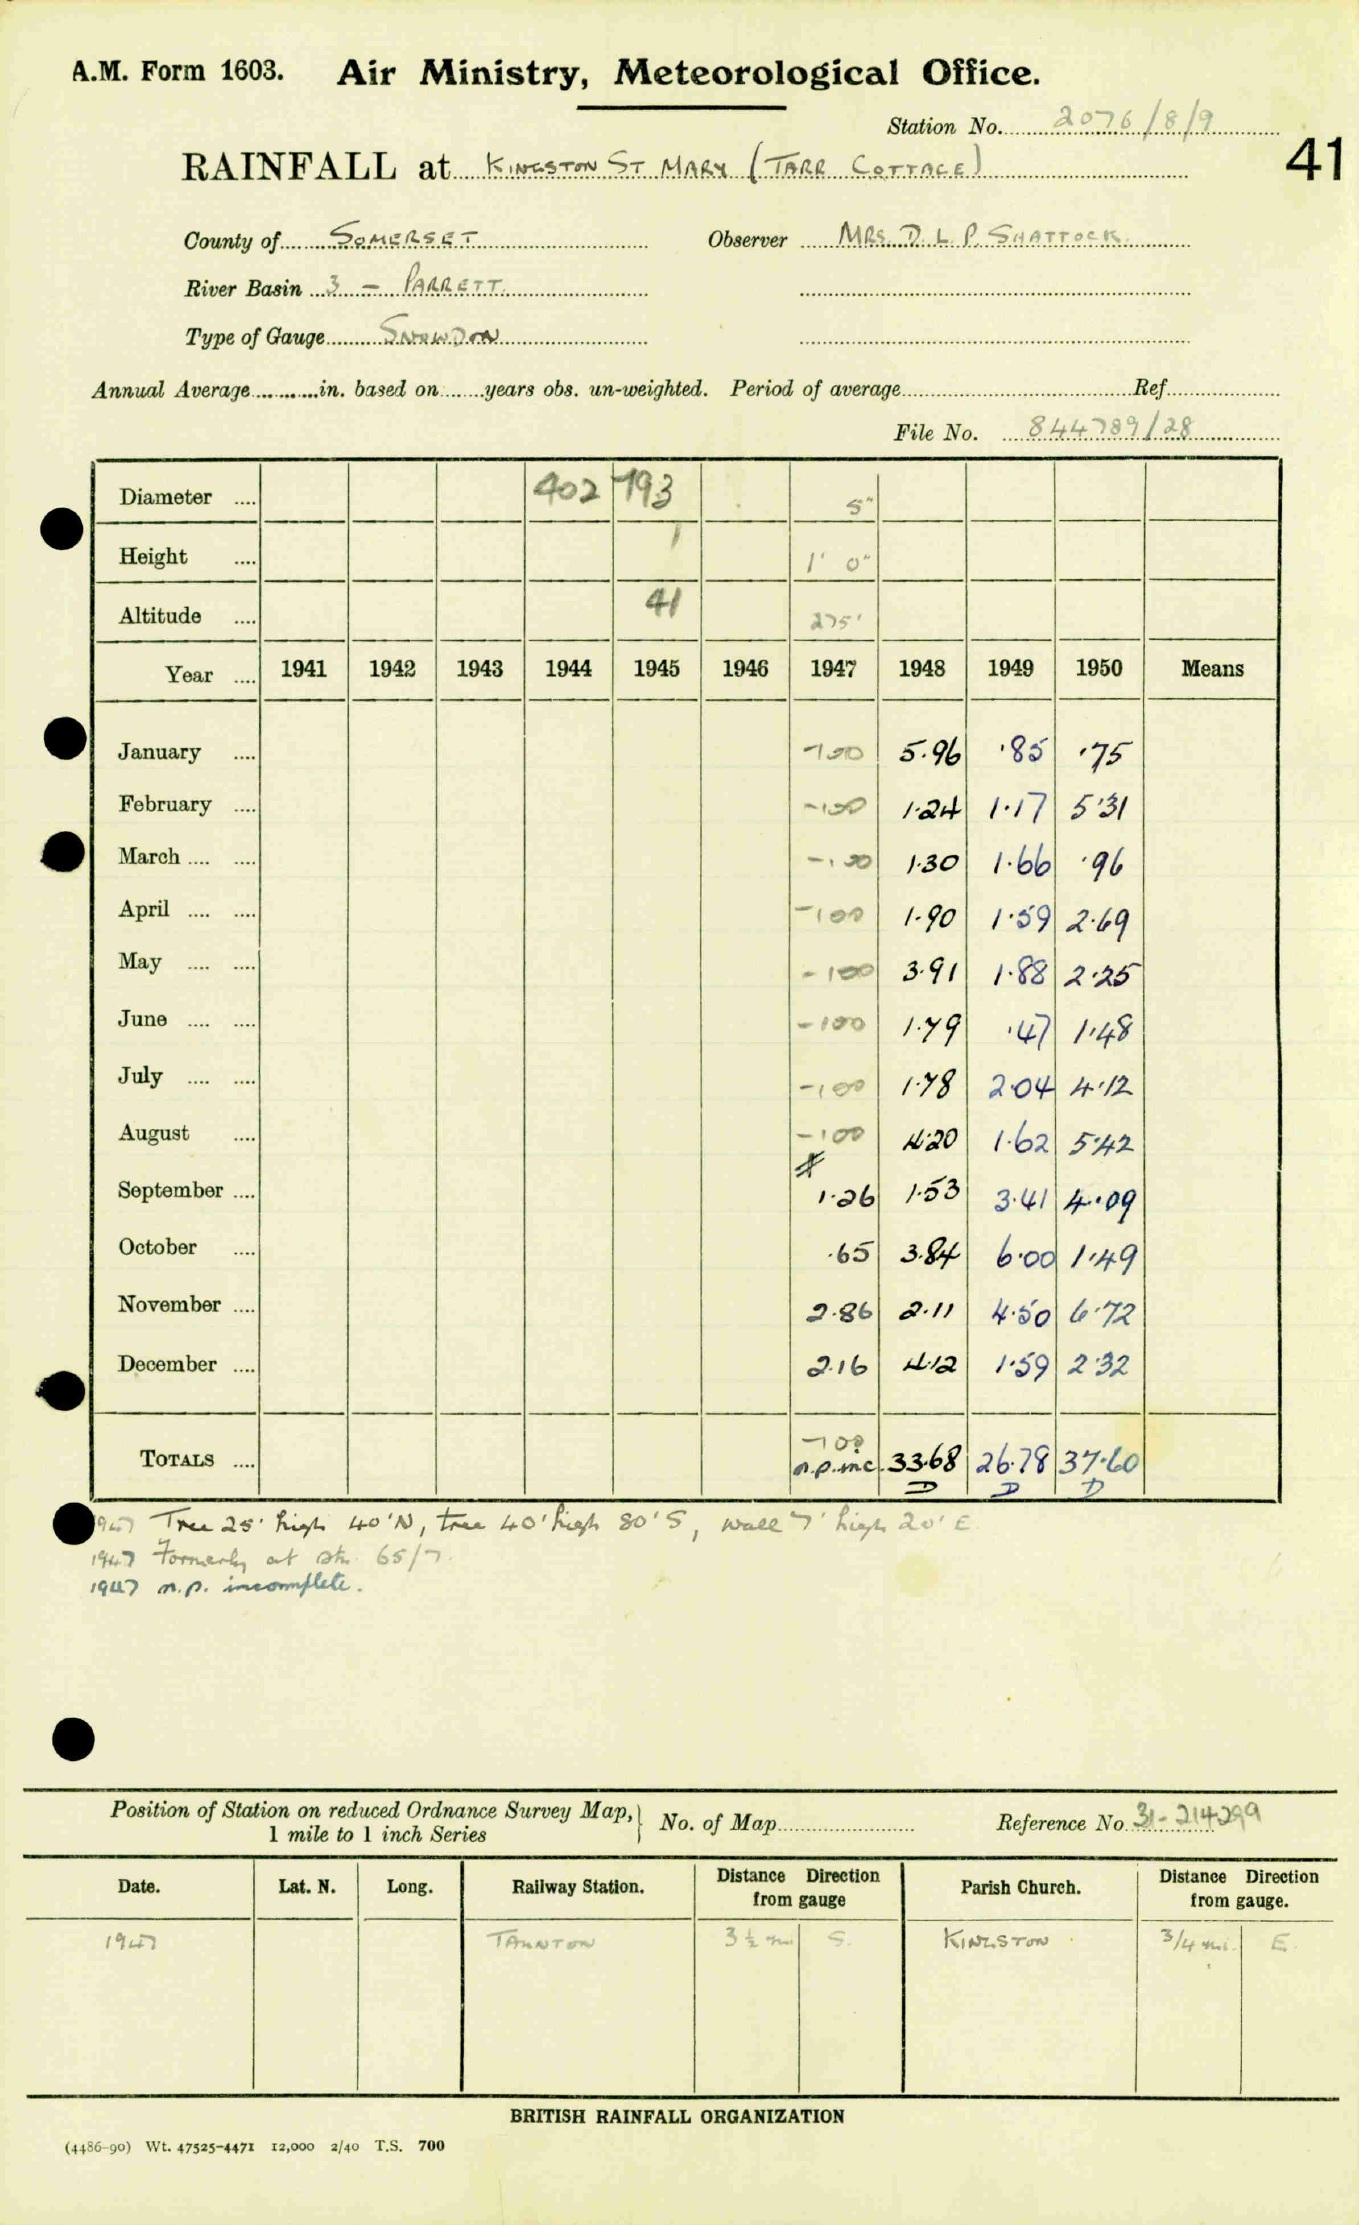 A.M. Form 1603. Air Ministry, Meteorological Office.
Station No. 2076/8/9
41
RAINFALL at KINGSTON ST MARY (TARR COTTAGE)
County of SOMERSET Observer MRS. D. L. P. SHATTOCK.
River Basin 3 - PARRETT.
Type of Gauge SNOWDON
Annual Average in. based on years obs. un-weighted. Period of average Ref.
File No. 844789/28
Diameter 402 793 5"
Height 1 1' 0"
Altitude 41 275'
Year 1941 1942 1943 1944 1945 1946 1947 1948 1949 1950 Means
January -100 5.96 .85 .75
February -100 1.24 1.17 5.31
March -100 1.30 1.66 .96
April -100 1.90 1.59 2.69
May -100 3.91 1.88 2.25
June -100 1.79 .47 1.48
July -100 1.78 2.04 4.12
August -100 4.20 1.62 5.42
September 1.26 1.53 3.41 4.09
October .65 3.84 6.00 1.49
November 2.86 2.11 4.50 6.72
December 2.16 4.12 1.59 2.32
-100
TOTALS n.p.inc. 33.68 26.78 37.60
D D D
1947 Tree 25' high 40' N, tree 40' high 80' S, wall 7' high 20' E.
1947 Formerly at stn. 65/7.
1947 n.p. incomplete.
Position of Station on reduced Ordnance Survey Map,
1 mile to 1 inch Series
No. of Map Reference No. 31-214299
Date. Lat. N. Long. Railway Station. Distance Direction from gauge Parish Church. Distance Direction from gauge.
1947 TAUNTON 3½ mi S. KINGSTON 3/4 mi. E.
BRITISH RAINFALL ORGANIZATION
(4486-90) Wt. 47525-4471 12,000 2/40 T.S. 700